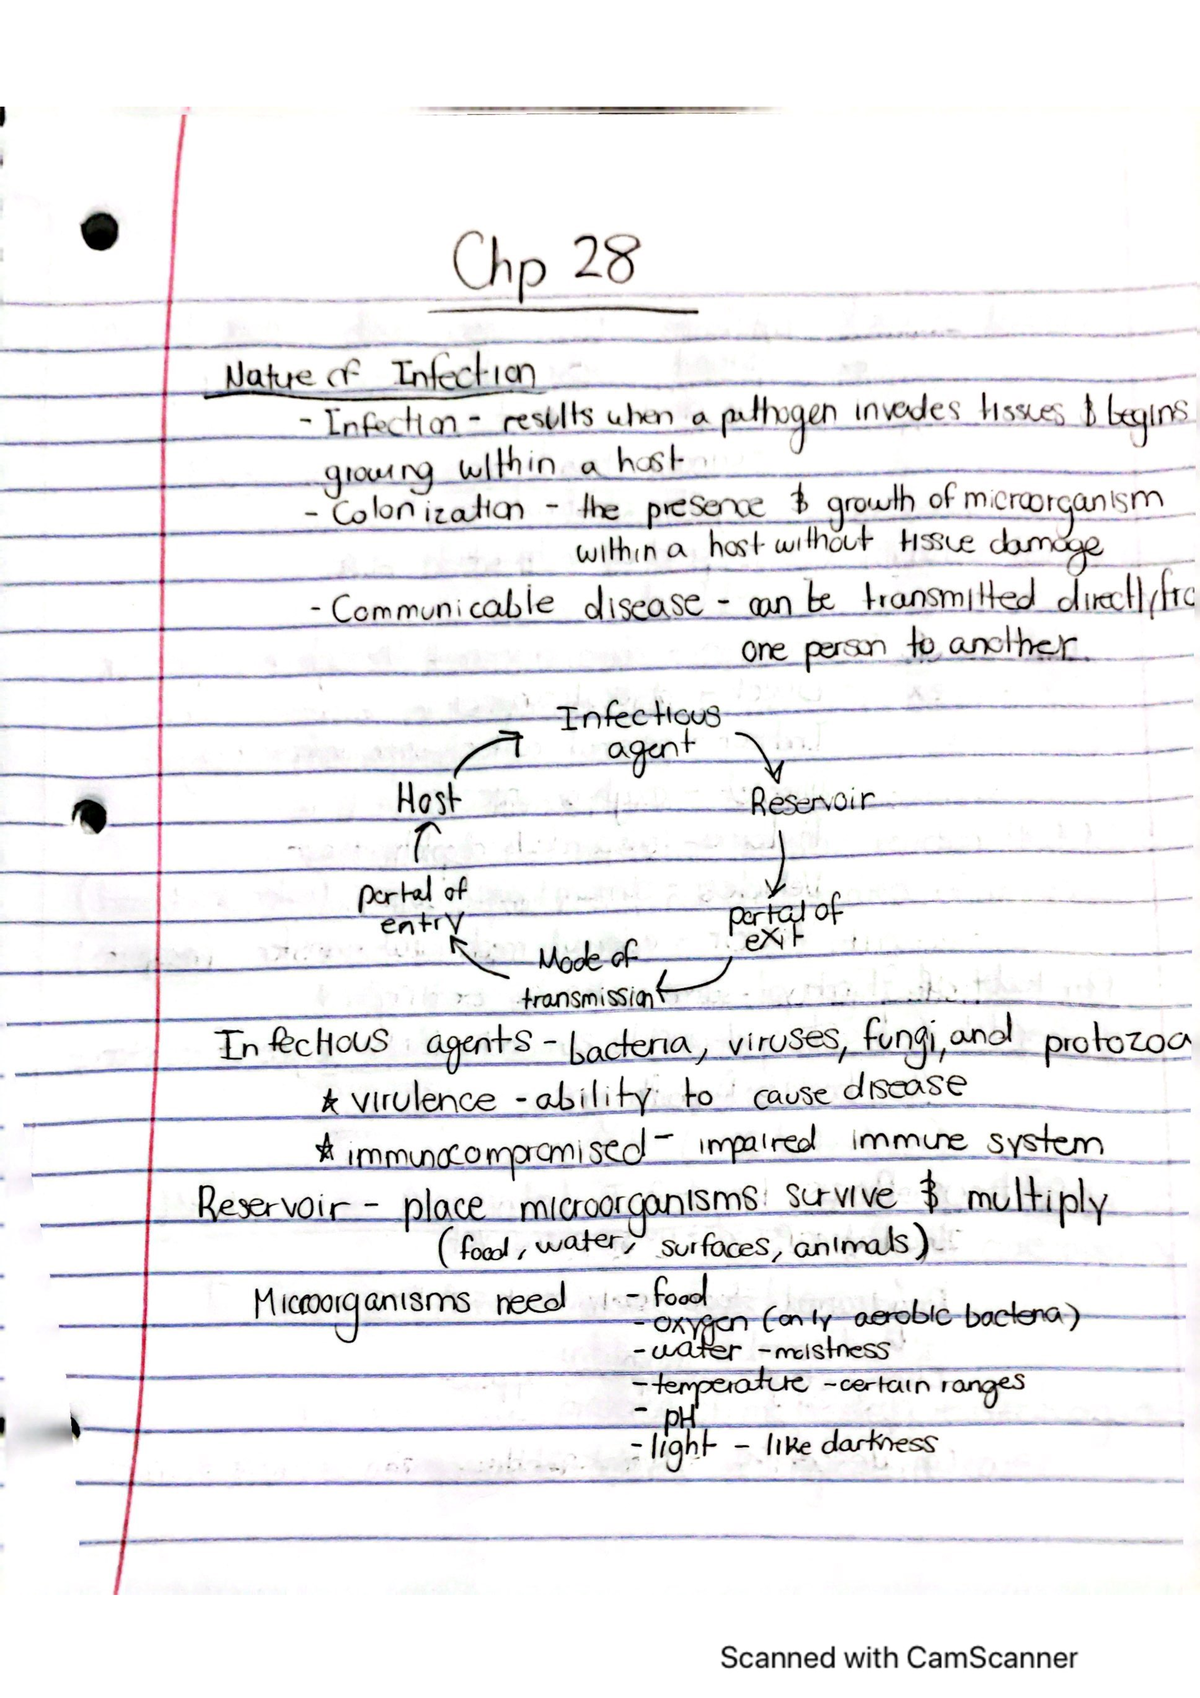 Chp 28
Nature of Infection
- Infection - results when a pathogen invades tissues & begins
growing within a host
- Colonization - the presence & growth of microorganism
within a host without tissue damage
- Communicable disease - can be transmitted directly
one person to another
Infectious
agent
Host
Reservoir
portal of
entry
portal of
exit
Mode of
transmission
Infectious agents - bacteria, viruses, fungi, and protozoa
☆ virulence - ability to cause disease
☆ immunocompromised - impaired immune system
Reservoir - place microorganisms survive & multiply
(food, water, surfaces, animals)
Microorganisms need - food
- oxygen (only aerobic bacteria)
- water - moistness
- temperature - certain ranges
- pH
- light - like darkness
Scanned with CamScanner